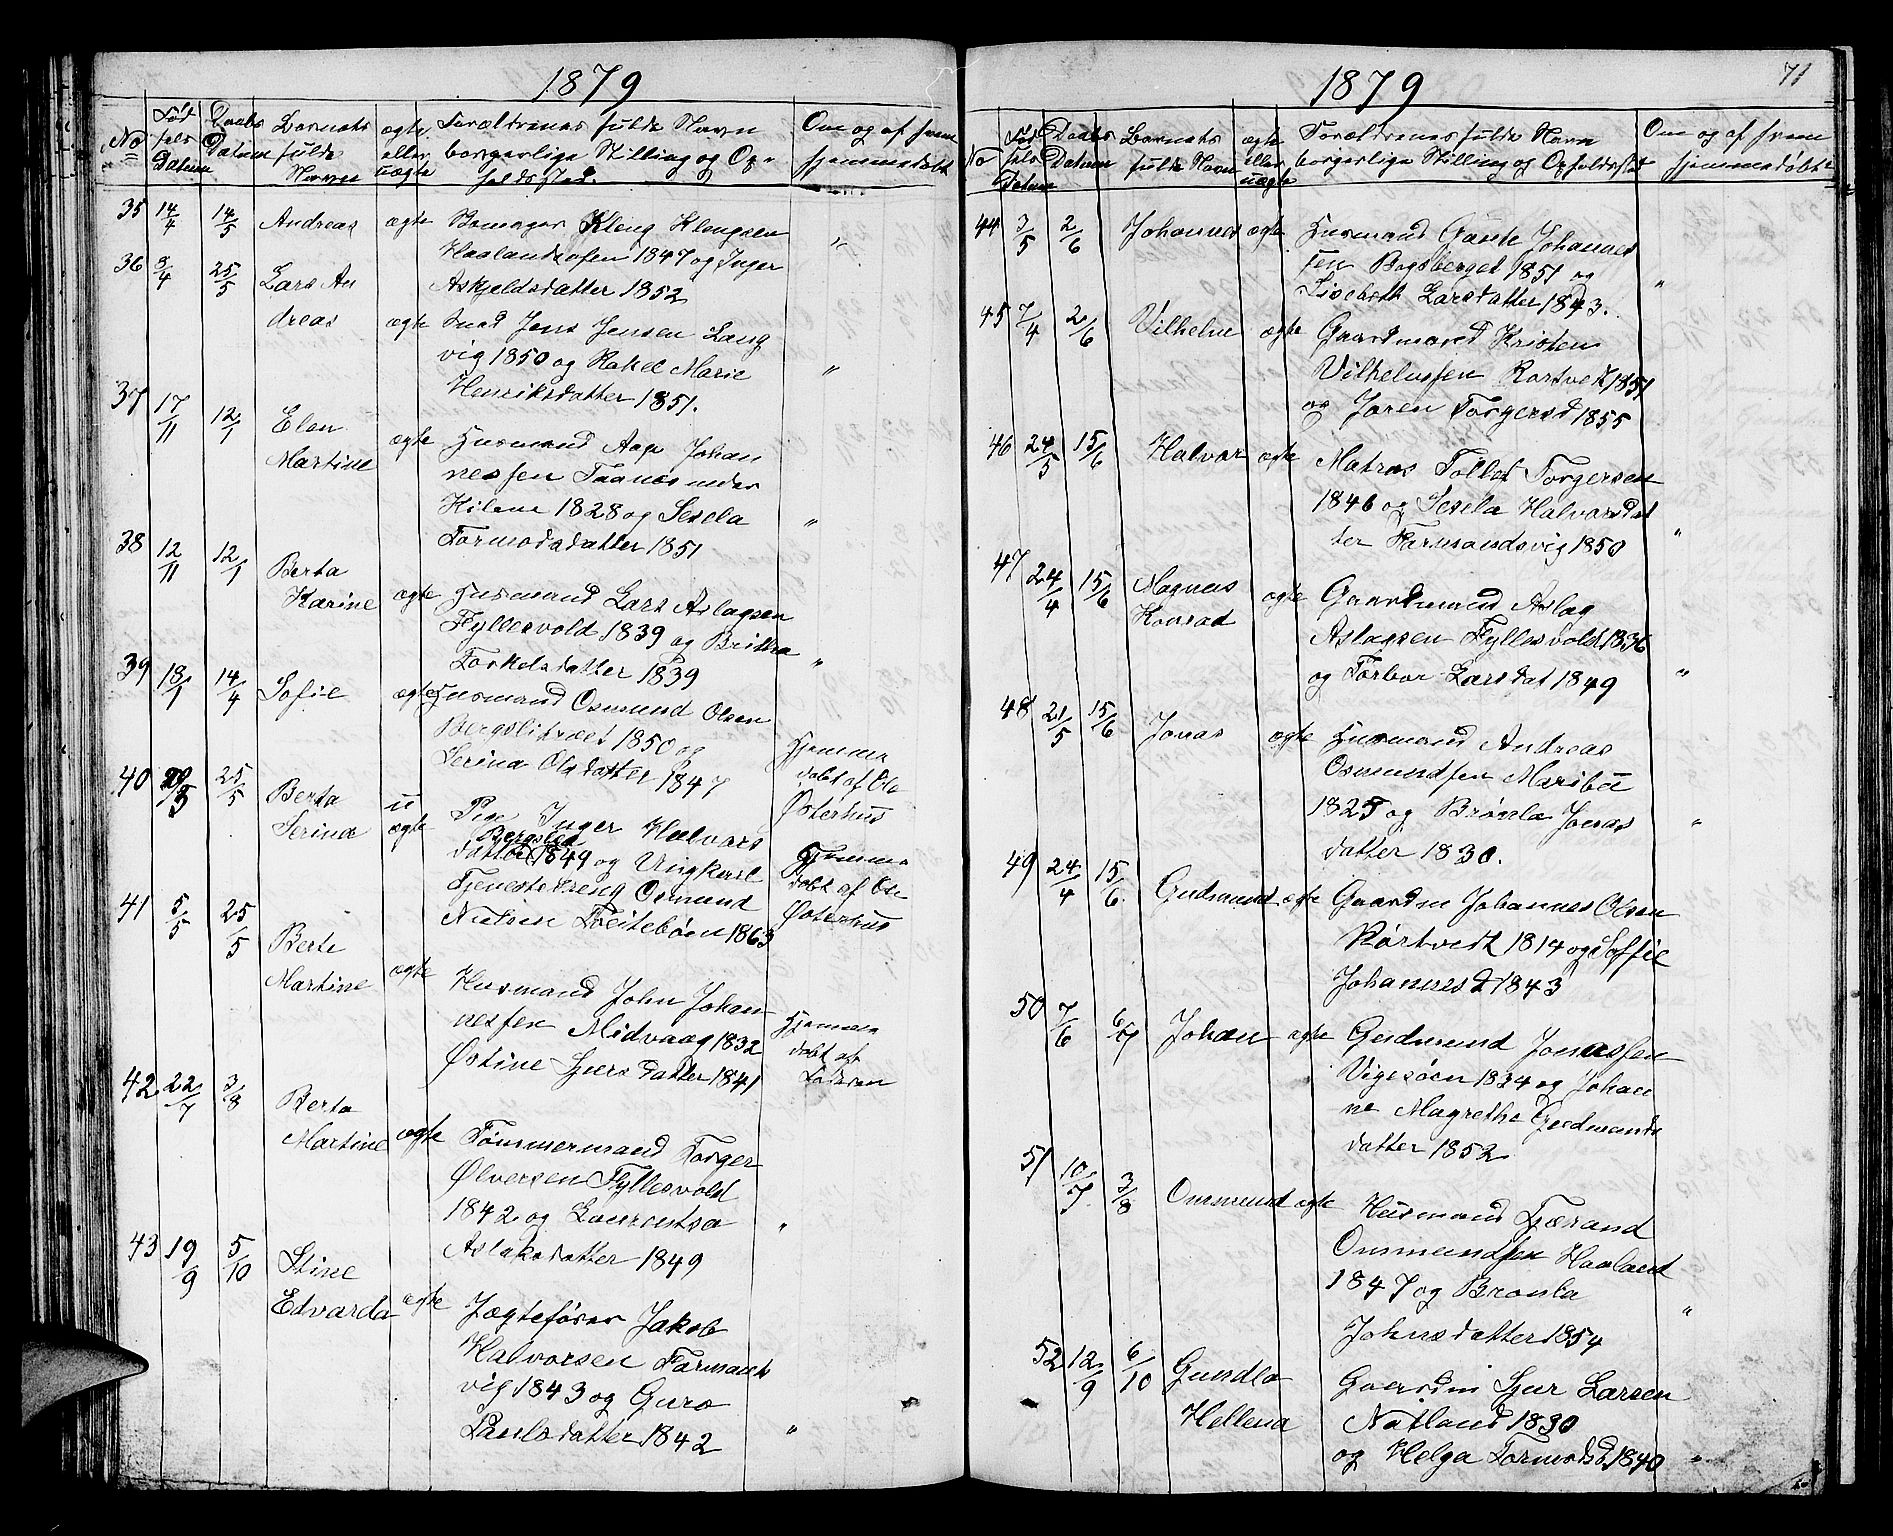 1879
No
Fød
sels
Datum
Daabs
Datum
Barnets
fulde
Navn
ægte
eller
uægte
Forældrenes fulde Navn
borgerlige Stilling og Op-
holdssted.
Om og af hvem
hjemmedøbt
35 14/4 14/5 Andreas ægte Kleng Klengsen
Haalandsosen 1847 og Inger
Askjeldsdatter 1852 "
36 3/4 25/5 Lars An
dreas ægte Smed Jens Jensen Lang
vig 1850 og Rakel Marie
Henriksdatter 1851. "
37 17/11 12/1 Elen
Martine ægte Husmand Aage Johan
nessen under
Kilene 1828 og Sesela
Tormodsdatter 1851 "
38 12/11 12/1 Berta
Karine ægte Husmand Lars Aslagsen
Fyllesvold 1839 og Britha
Torkelsdatter 1839 "
39 18/1 14/4 Sofie ægte Husmand Osmund Olsen
Bergslitræet 1850 og
Serina Olsdatter 1847
Hjemme
døbt af Ole
Østerhus
40 25/5 Berta
Serine
u
ægte
Pige Inger Halvors
Bergslid
datter 1849 og Ungkarl
Tjenestedreng Osmund
Nielsen Feitebøen 1863
Hjemme
døbt af Ole
Østerhus
41 5/5 25/5 Berte
Martine ægte Husmand John Johan
nessen Midvaag 1832
Østine Sjursdatter 1841
Hjemme
døbt af
Faderen
42 22/7 3/8 Berta
Martine ægte Tømmermand Torger
Ølversen Fyllesvold
1842 og Laurentsa
Aslaksdatter 1849 "
43 19/9 5/10 Stine
Edvarda ægte Jægtefører Jakob
Halvorsen Farmands
vig 1843 og Guro
Paulsdatter 1842 "
1879
71
No
Fød
sels
Datum
Daabs
Datum
Barnets
fulde Navn
ægte
eller
uægte
Forældrenes fulde Navn
borgerlige Stilling og Opholdssted
Om og af hvem
hjemmedøbt
44 3/5 2/6 Johannes ægte Husmand Gaute Johannes
sen Bogsberget 1851 og
Lisebeth Larsdatter 1843. "
45 7/4 2/6 Vilhelm ægte Gaardmand Kristen
Vilhelmsen Rortvedt 1851
og Joren Torgersd 1855
46 24/5 15/6 Halvor ægte Matros Tollef Torgersen
1846 og Sesela Halvorsdat
ter Farmandsvig 1850 "
47 24/4 15/6 Magnus
Konrad ægte Gaardmand Aslag
Aslagsen Fyllesvold 1836
og Torbor Larsdat 1849 "
48 21/5 15/6 Jonas ægte Husmand Andreas
Osmundsen Maribu
1825 og Brønla Jonas
datter 1830. "
49 24/4 15/6. Gudmund ægte Gaardm Johannes Olsen
Rørtvedt 1814 og Soffie
Johannesd 1843
50 7/6 6/7 Johan ægte Gudmund Jonassen
Vigesøen 1834 og Johan
ne Magrethe Gudmunds
datter 1852
51 10/7 3/8 Ommund ægte Husmand Tjærand
Ommundsen Haaland
1847 og Bronla
Johnsdatter 1854 "
52 12/9 6/10 Gundla
Hellena Gaardm Sjur Larsen
Natland 1830
og Helga Tormodsd 1840 "